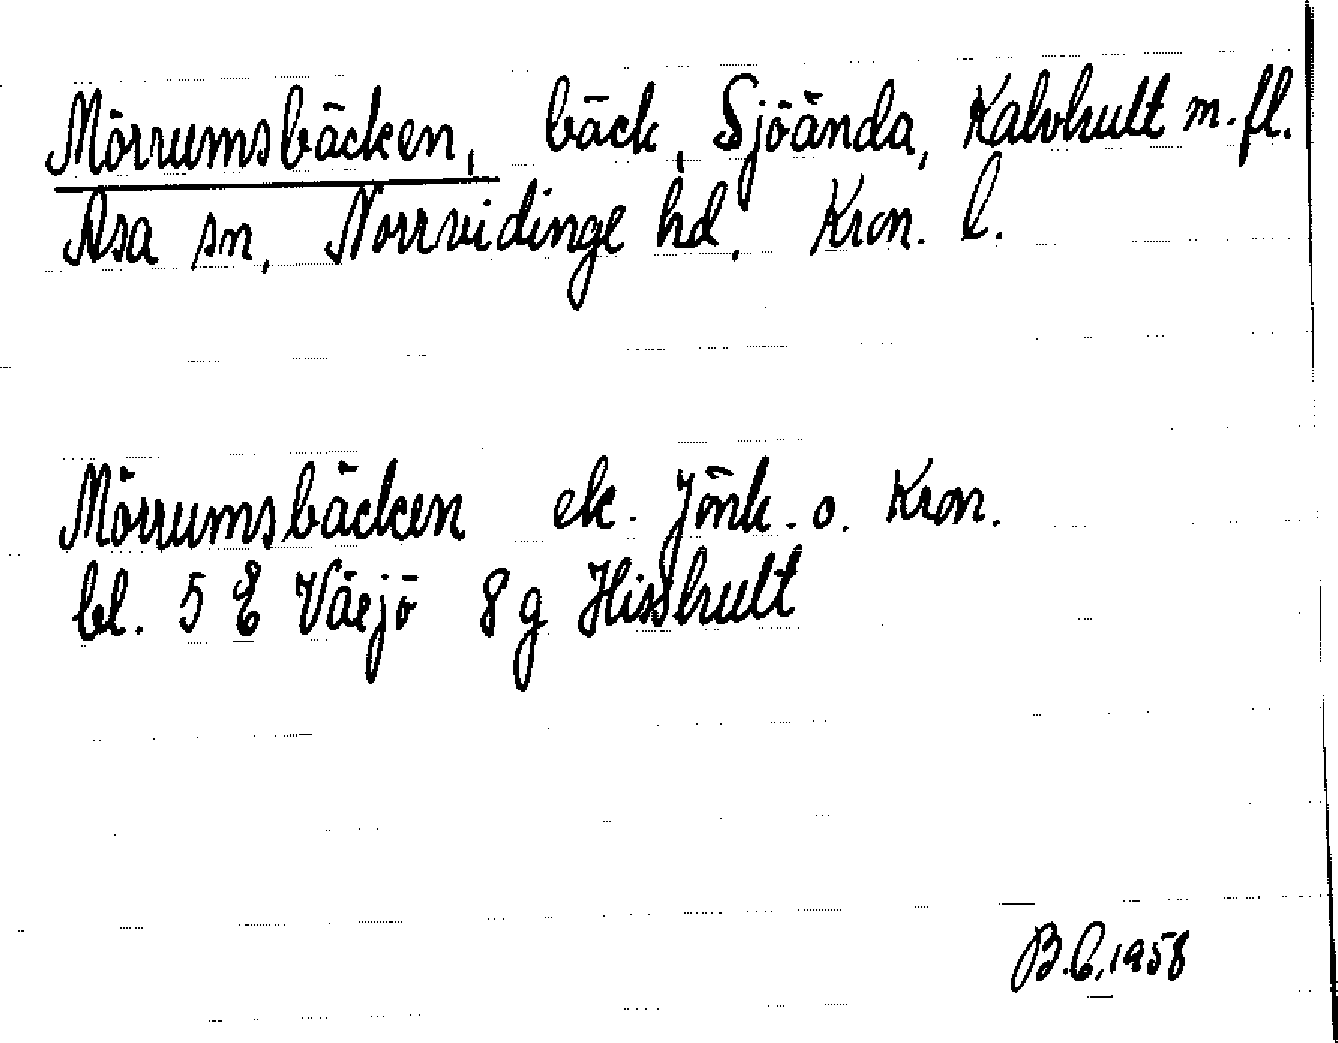 Mörrumsbäcken, bäck, Sjöända, Kalvhult m.fl.
Asa sn, Norrvidinge hd. Kron. l.
Mörrumsbäcken ek. Jönk. o. Kron.
bl. 5 E Växjö 8 g Hisshult
B.E. 1958